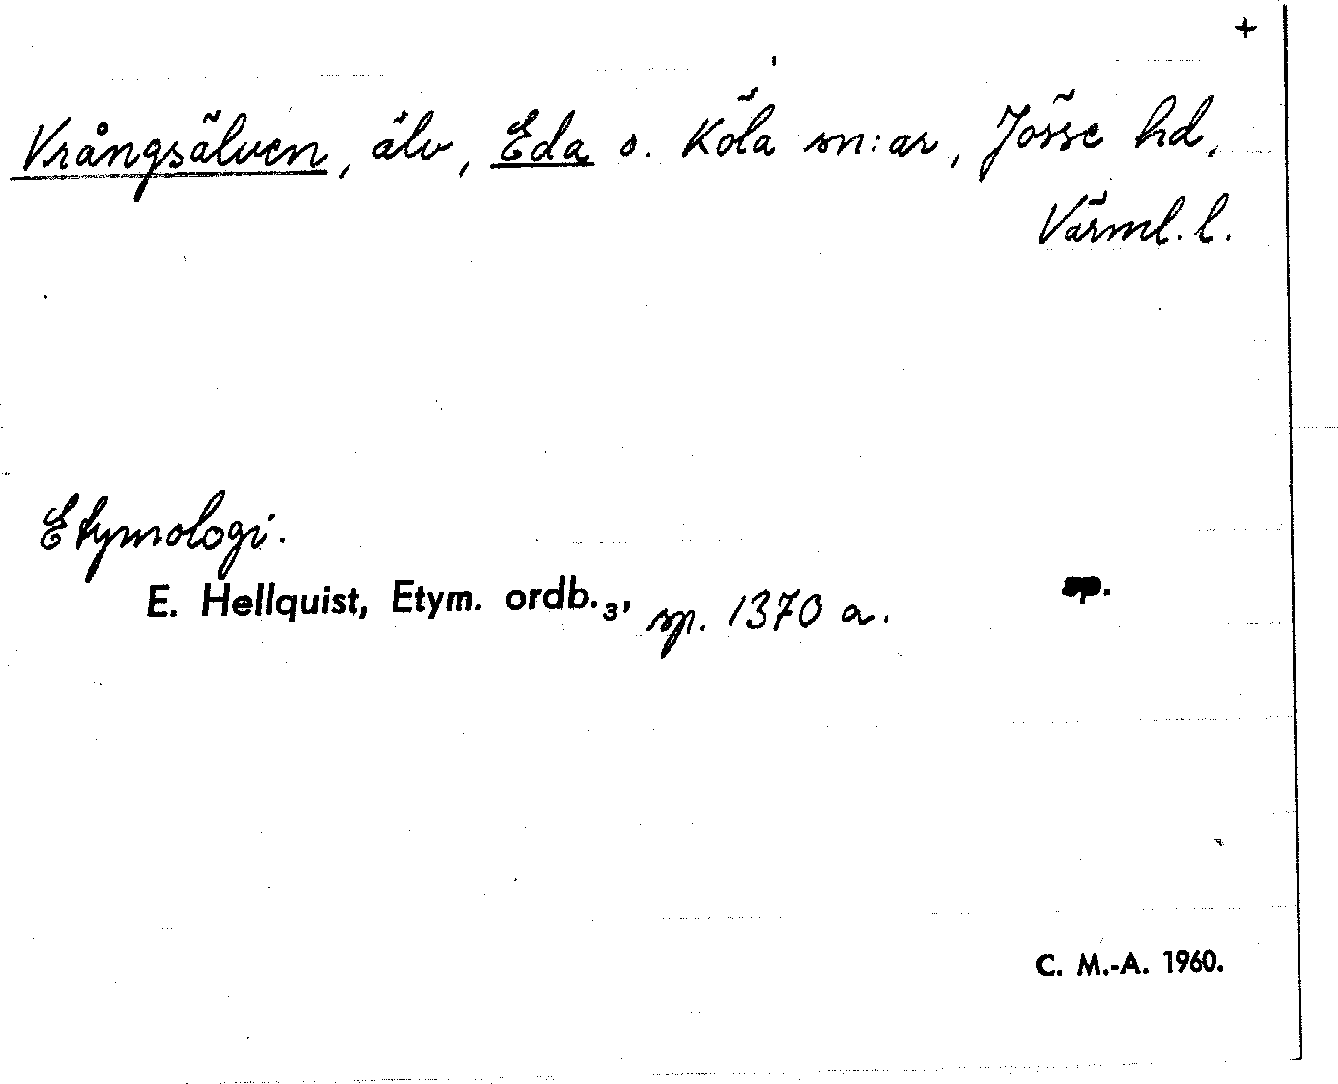 +
Vrångsälven, älv, Eda o. Köla sn:ar, Jösse hd,
Värml. l.
Etymologi.
E. Hellquist, Etym. ordb.₃, sp. 1370 a.
C. M.-A. 1960.